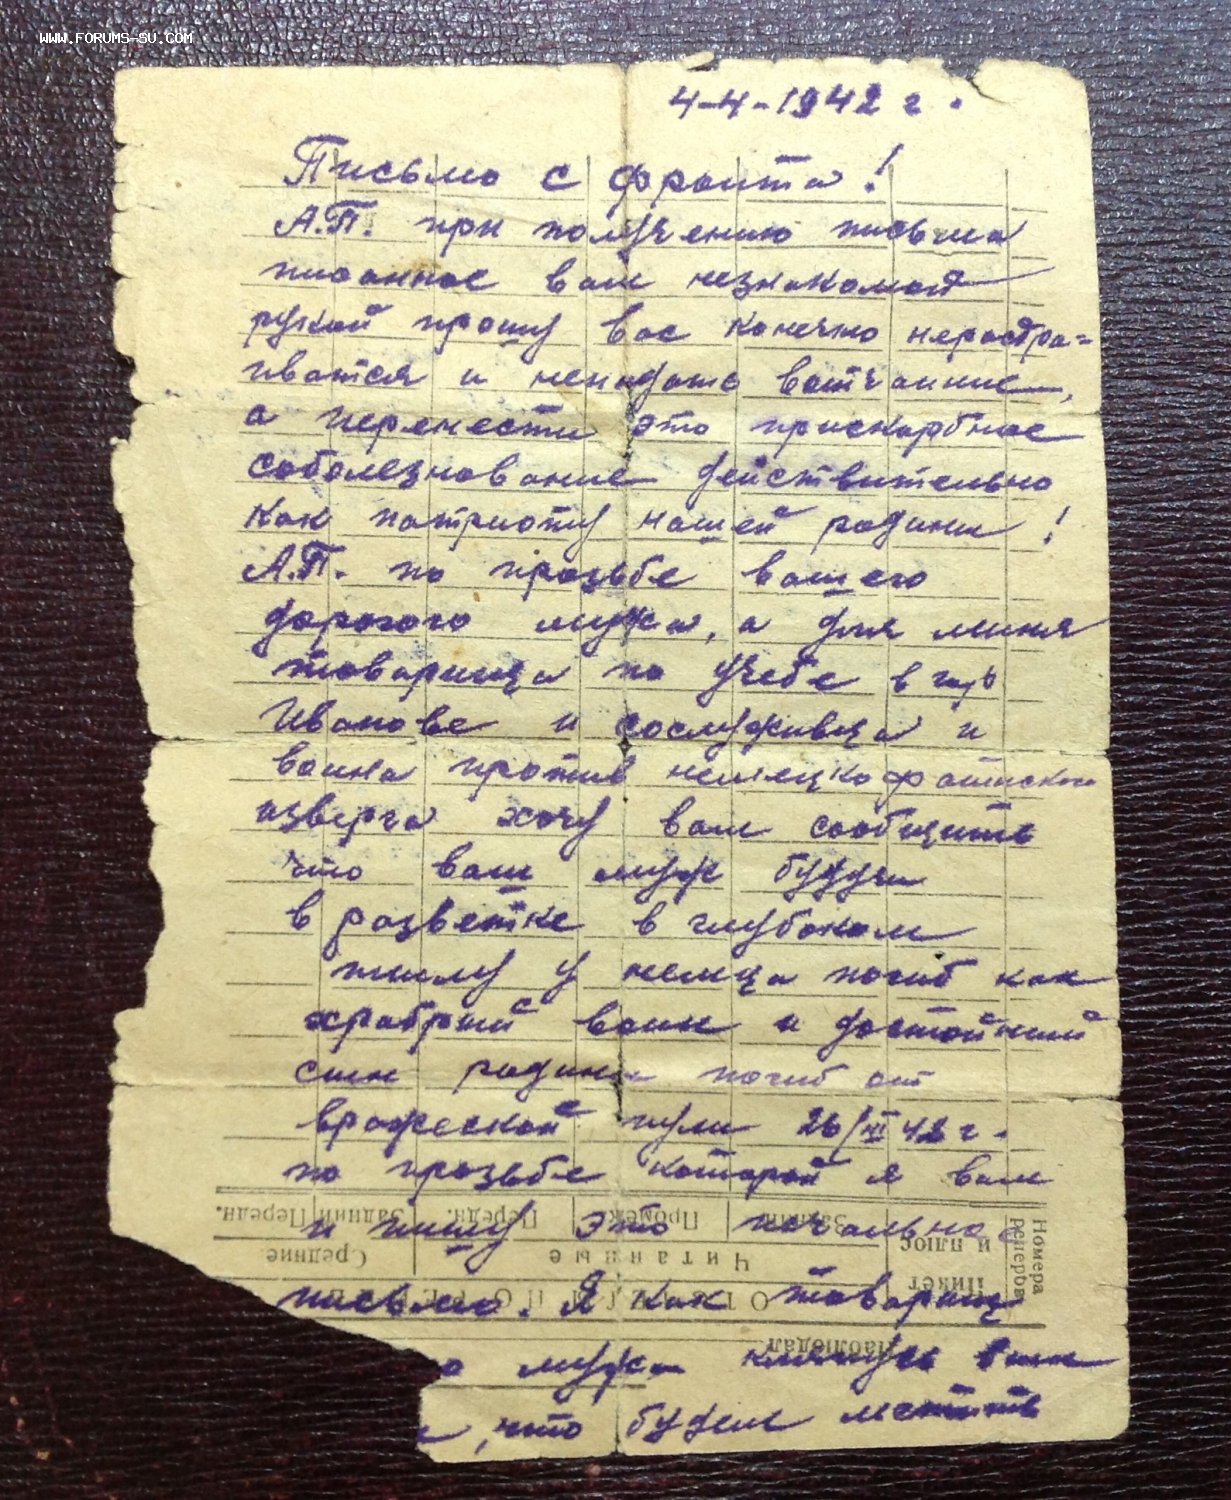 WWW.FORUMS-SU.COM
4-4-1942 г.
Письмо с фронта!
А.П. при получению письма
писанное вам незнакомой
рукой прошу вас конечно нерастра=
иватся и невпадать вотчаиние,
а перенести это прискорбное
соболезнование действительно
как патриоту нашей родины!
А.П. по прозьбе вашего
дорогого мужа, а для миня
товарища по учебе в гор
Иванове и сослуживца и
воина против немецко фашиского
изверга хочу вам сообщить
что ваш муж будучи
в разветке в глубоком
тылу у немца погиб как
храбрый воин и достойный
сын родины погиб от
вражеской пули 26/ 42 г.
по прозьбе которой я вам
и пишу это печально
письмо. Я как товарищ
мужа клянусь вам
, что будем мстить
Номера Реперов
Пикет и плюс
Задний
Промеж
Передн.
Задний
Передн.
Читанные
Средние
Наблюдал